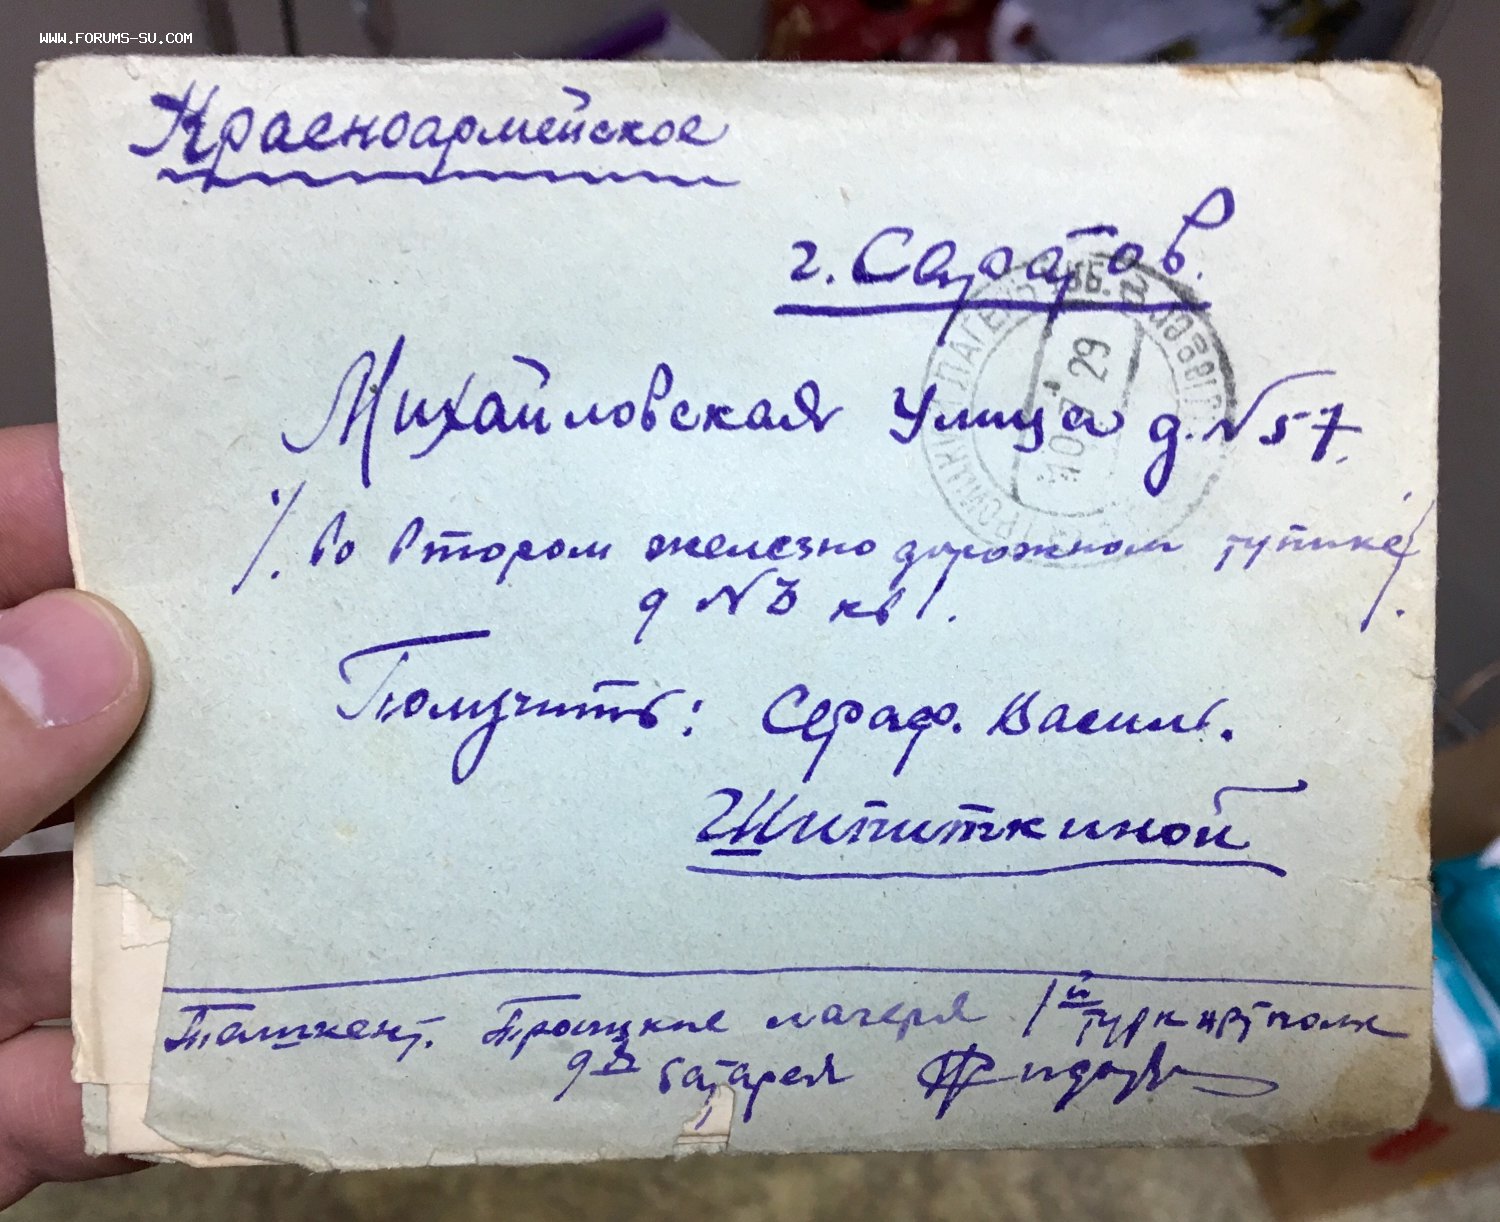 WWW.FORUMS-SU.COM
Красноармейское
г. Саратов.
Михайловская улица д. № 57.
/. во втором железно дорожном тупике /.
д № 3 кв 1.
Получить: Сераф. Василь.
Шипиткиной
Ташкент. Троицкие лагеря 1й Турк артполк
9я батарея
10.7.29